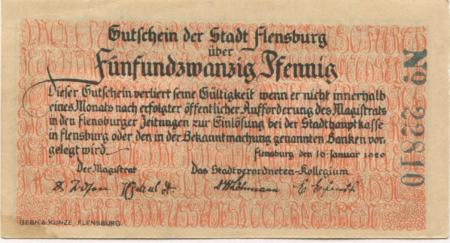 Gutschein der Stadt Flensburg
über
Fünfundzwanzig Pfennig
Dieser Gutschein verliert seine Gültigkeit wenn er nicht innerhalb
eines Monats nach erfolgter öffentlicher Aufforderung des Magistrats
in den Flensburger Zeitungen zur Einlösung bei der Stadthauptkasse
in Flensburg oder den in der Bekanntmachung genannten Banken vor-
gelegt wird.
Flensburg, den 10·Januar 1920
Der Magistrat Das Stadtverordneten-Kollegium
GEBR·A·KUNZE, FLENSBURG
No. 22810